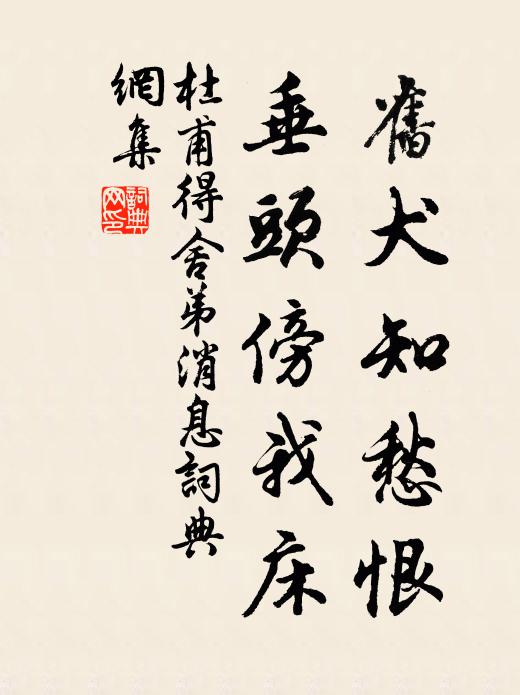 舊犬知愁恨
垂頭傍我床
杜甫得舍弟消息詞典
網集
詞典
网印